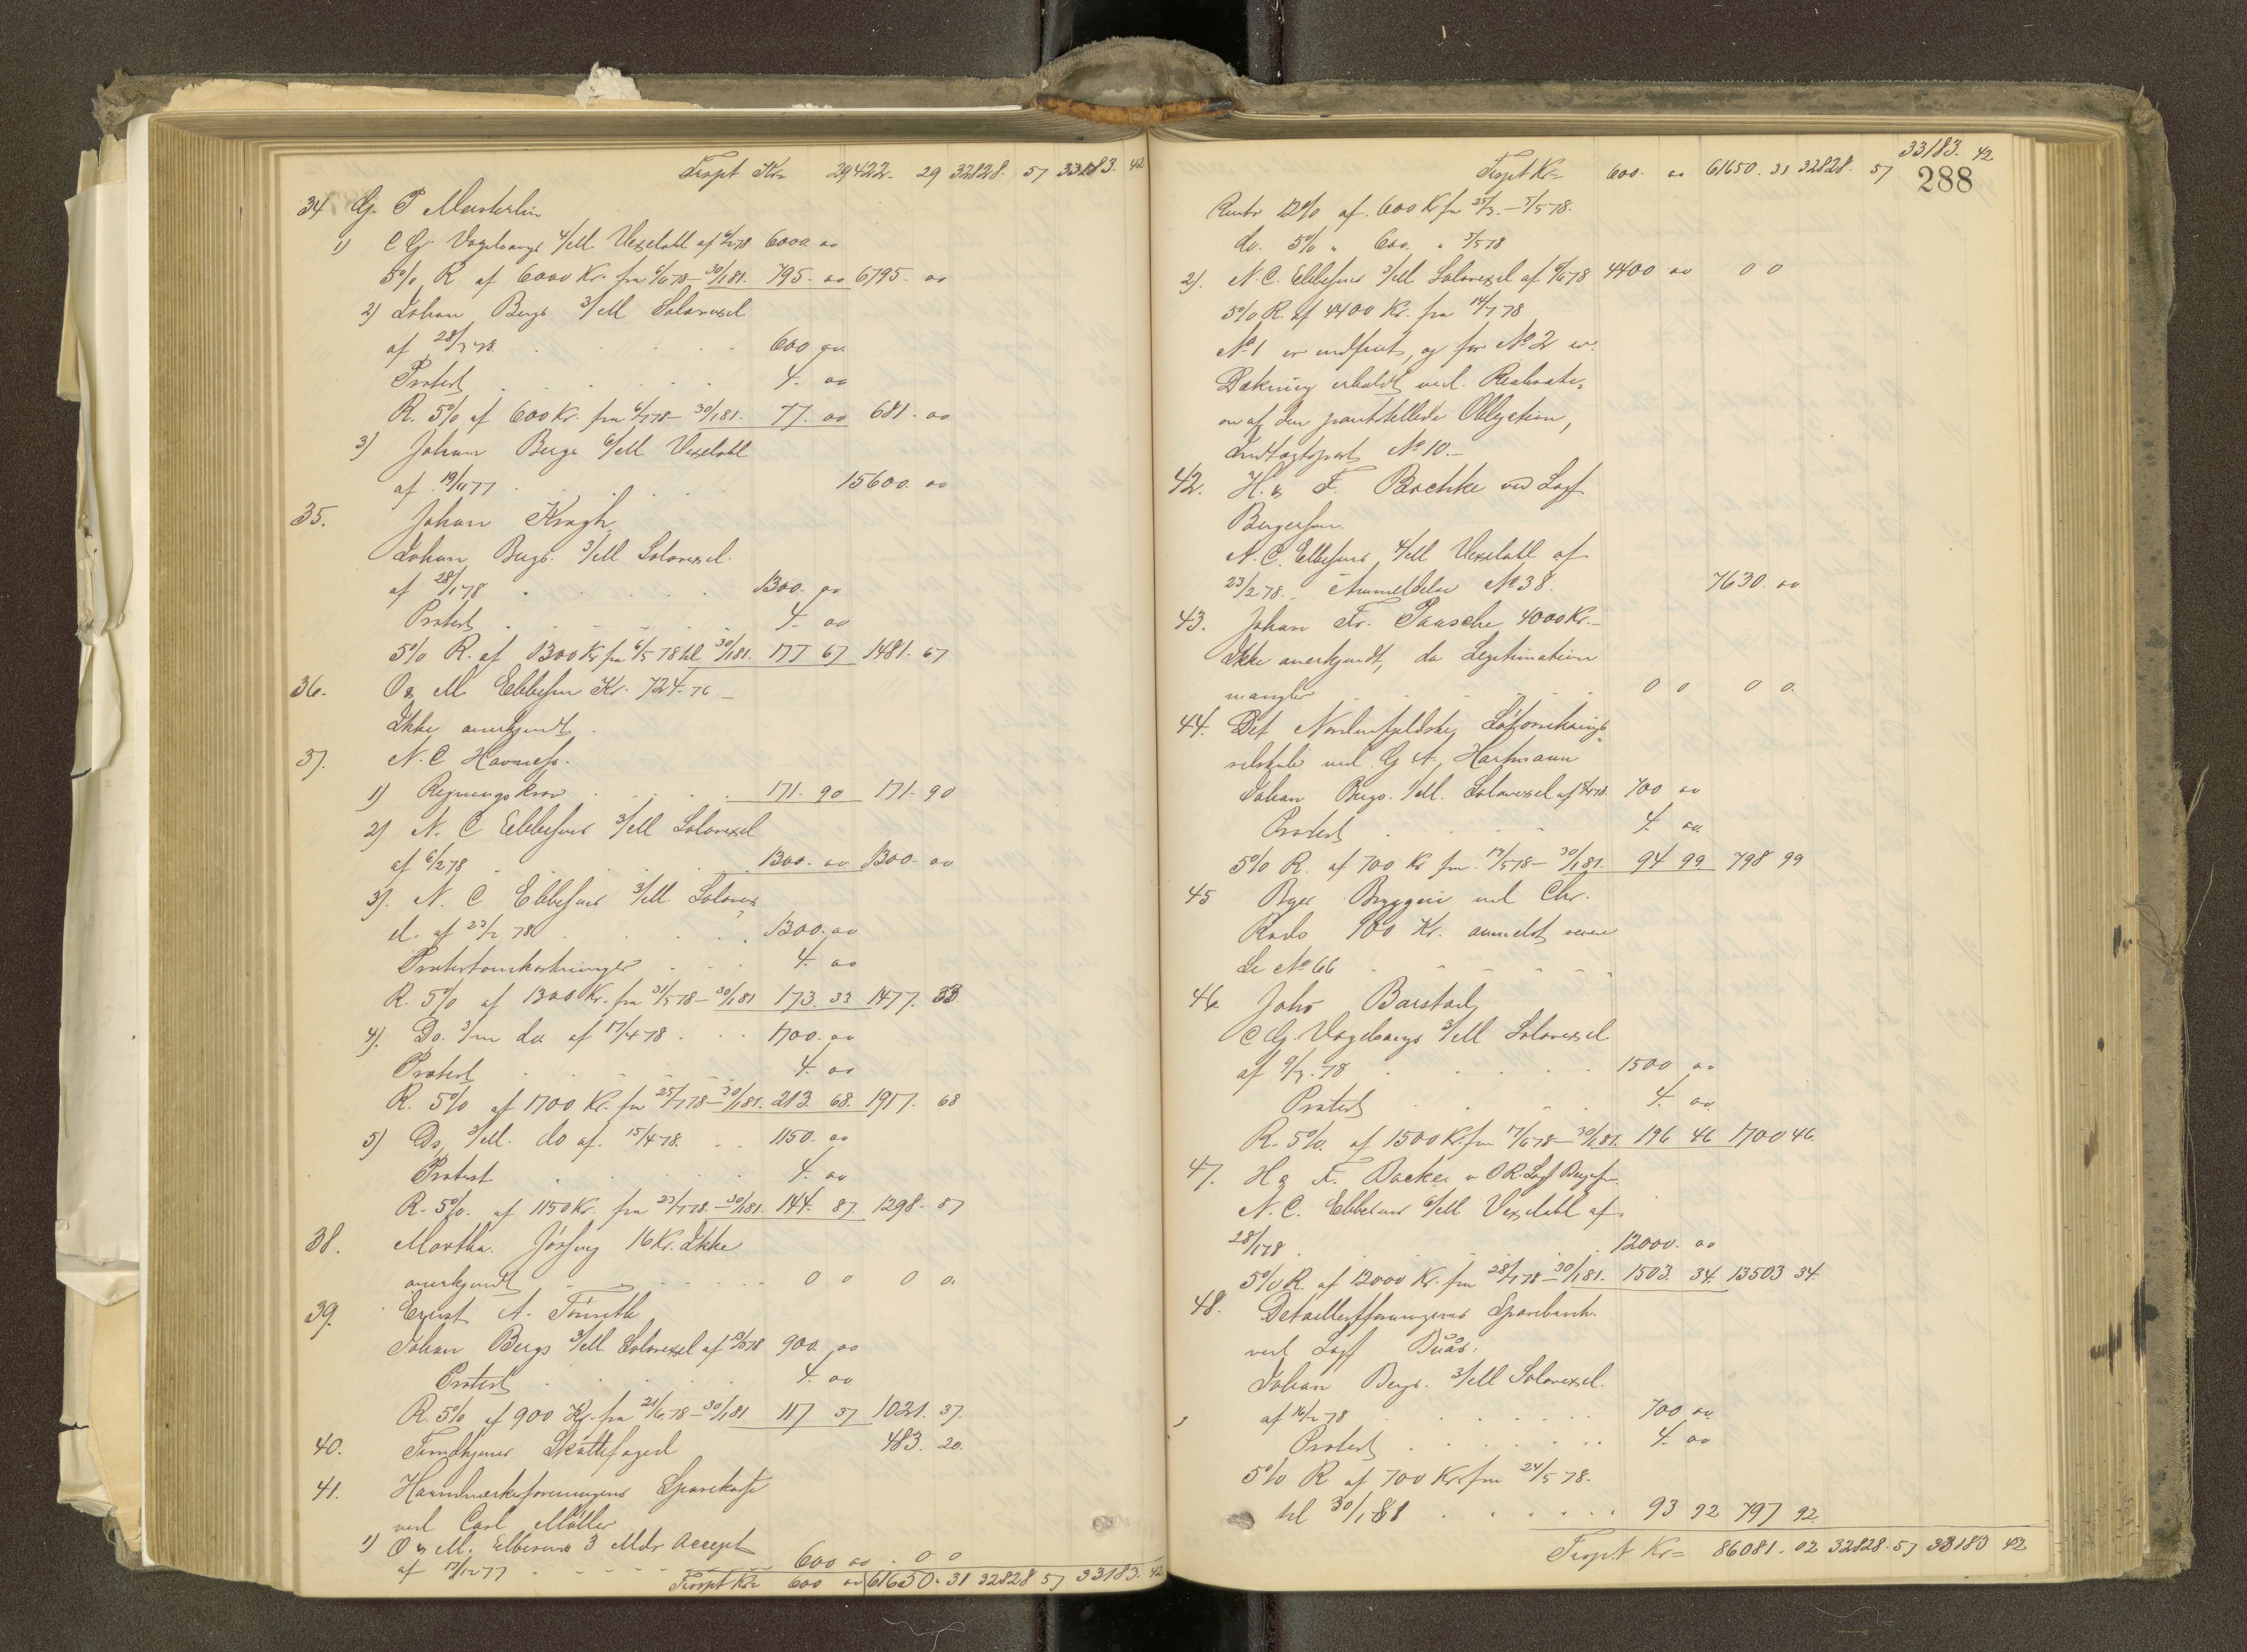 Trspt Kr= 29422. 29 32828. 57 33183. 42
34 G. P Mæsterlin
1) C G. Vogelsangs 4/M. Vexelobl af 6/2 78 6000. 00
5% R af 6000 Kr. fra 6/6 78 – 30/1 81. 795. 00 6795. 00
2) Johan Bergs 3/M Solavexel
af 28/1 78. 600 00
Protest 4. 00
R. 5% af 600 Kr. fra 6/7 78 – 30/1 81. 77. 00 681. 00
3) Johan Bergs 6/M Vexelobl
af 19/11 77 15600. 00
35. Johan Krogh
Johan Bergs. 3/M Solavexel.
af 28/1 78 1300. 00
Protest 4. 00
5% R. af 1300 Kr fra 6/5 78 til 30/1 81. 177 67 1481. 67
36. O & M. Ebbesen Kr. 724. 76.
Ikke anerkjendt.
37. N. C Havnæs.
1) Regningskrav 171. 90 171. 90
2) N. C Ebbesens 3/M Solavexel
af 6/2 78 1300. 00 1300. 00
3). N. C Ebbesens 3/M. Solavex=
el. af 23/2 78 1300. 00
Protestomkostninger 4. 00
R. 5% af 1300 Kr. fra 31/5 78 – 30/1 81 173. 33 1477. 33
4). Do. 3/m do. af 17/4 78 1700. 00
Protest 4. 00
R. 5% af 1700 Kr. fra 25/7 78 – 30/1 81. 213. 68. 1917. 68
5) Do, 3/M. do af. 15/4 78. 1150. 00
Protest 4. 00
R. 5%. af 1150 Kr. fra 23/7 78. – 30/1 81. 144. 87. 1298. 87
38. Martha. 16 Kr. Ikke
anerkjendt 0 0 0 0.
39. Ernst A.
Johan Bergs 3/M Solavexel af 900. 00
Protest 4. 00
R. 5% af 900 Kr. fra 21/6 78 – 30/1 81 117 37 1021. 37.
40. Trondhjems Skattefoged 483. 20.
41. Haandværkerforeningens Sparekasse
ved Carl Möller
1) O & M. Ebbesens 3 Mdr Accept
af 17/12 77 600 00 0 0
Trspt Kr= 600 00 61650. 31 32828 57 33183. 42
33183. 42
Trspt Kr= 600. 00 61650. 31 32828. 57
288
Rente 12% af. 600 Kr fra 25/3. – 3/5 78.
do. 5% " 600. " 3/5 78
2). N. C. Ebbesens 3/M Solavexel af 4400 00 0 0
5% R. af 4400 Kr. fra 14/7 78
No 1 er indfriet, og for No 2 er
Dækning erholdt ved. Realisati=
on af den pantstillede Obligation,
Indtægtspost No 10.–
42. H. & F. Bachke ved Sagf
Bergersen.
N. C. Ebbesens 4/M Vexelobl af
23/2 78. Anmeldelse No 38. 7630. 00
43. Johan Fr. Pausche 4000 Kr.–
Ikke anerkjendt, da Legitimation
mangler 0 0 0 0.
44. Det Nordenfjeldske
selskab ved G A. Hartmann
Johan Bergs. /M. Solavexel af 700 00
Protest 4 00.
5% R. af 700 Kr fra 13/5 78 – 30/1 81. 94 99. 798 99
45 Byes Bryggeri ved Chr.
100 Kr. anmeldt senere
Se No 66
46. Johs Barstad
C G. Vogelsangs 3/M Solavexel
af 9/3. 78 1500 00
Protest 4. 00.
R. 5%. af 1500 Kr. fra 17/6 78 – 30/1 81. 196 46 1700 46.
47. H & F. Bachke v. O R. Sagf Bergersen.
N. C. Ebbesens 6/M Vexelobl af.
28/1 78 12000. 00
5% R. af 12000 Kr. fra 28/7 78 – 30/1 81. 1503. 34. 13503 34.
48. Detaillistforeningens Sparebank.
ved Sagf Buås:
Johan Bergs. 3/M Solavexel.
af 16/2 78 700 00.
Protest 4. 00
5% R. af 700 Kr. fra 24/5 78.
til 30/1 81 93 92 797 92.
Trspt Kr= 86081. 02 32828. 57 33183 42